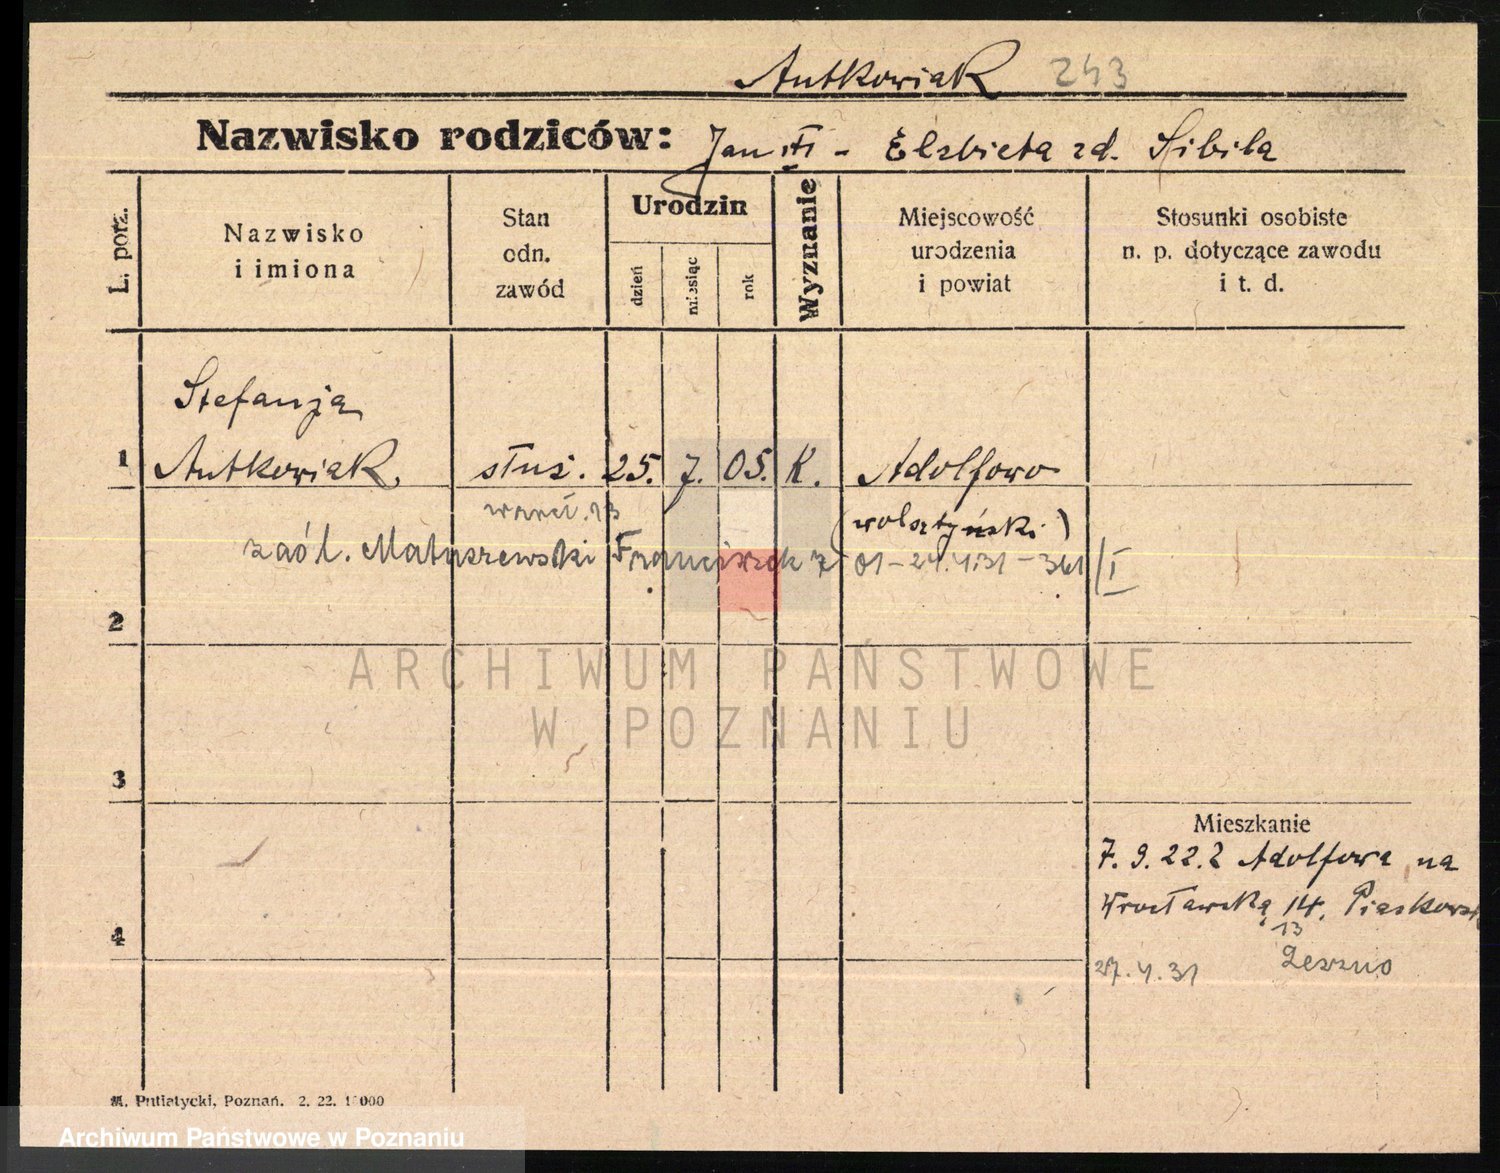 Antkowiak 243
Nazwisko rodziców: Jan - Elzbieta zd. Sibila
L. porz.
Nazwisko
i imiona
Stan
odn.
zawód
Urodzin
dzień
miesiąc
rok
Wyznanie
Miejscowość
urodzenia
i powiat
Stosunki osobiste
n. p. dotyczące zawodu
i t. d.
Stefanja
1 Antkowiak. służ. 25. 7. 05. K. Adolfowo
(wolsztyński)
Matuszewski Franciszek 01-24.4.31-361/I
2
ARCHIWUM PAŃSTWOWE
W POZNANIU
3
Mieszkanie
7. 9. 22. z Adolfowa na
Wrocławską 14.
13
4
27.4.31 Leszno
M. Putiatycki, Poznań. 2. 22. 1 000
Archiwum Państwowe w Poznaniu